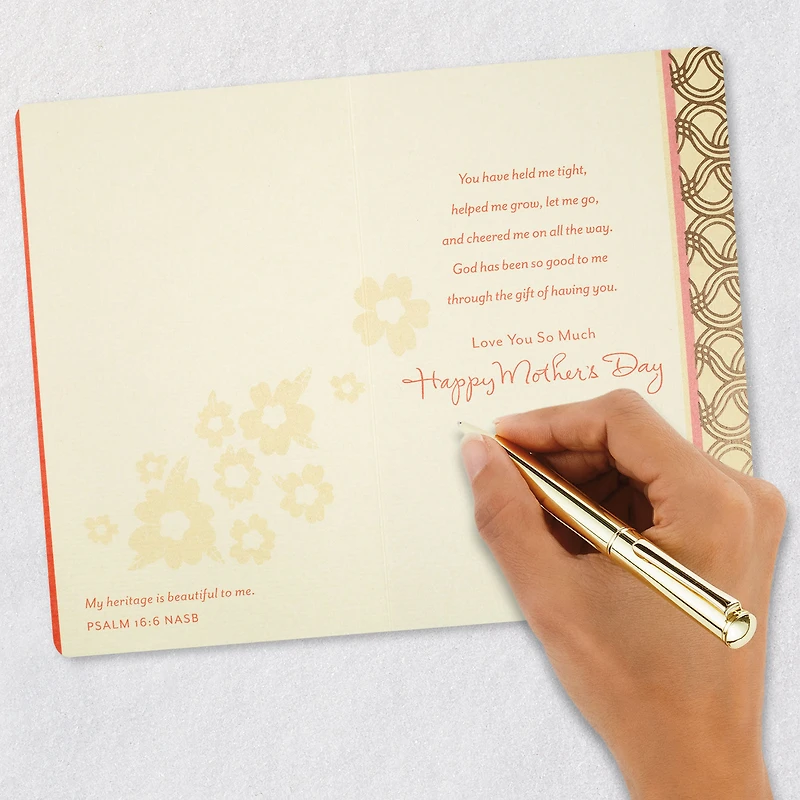 You have held me tight,
helped me grow, let me go,
and cheered me on all the way.
God has been so good to me
through the gift of having you.
Love You So Much
Happy Mother's Day
My heritage is beautiful to me.
PSALM 16:6 NASB